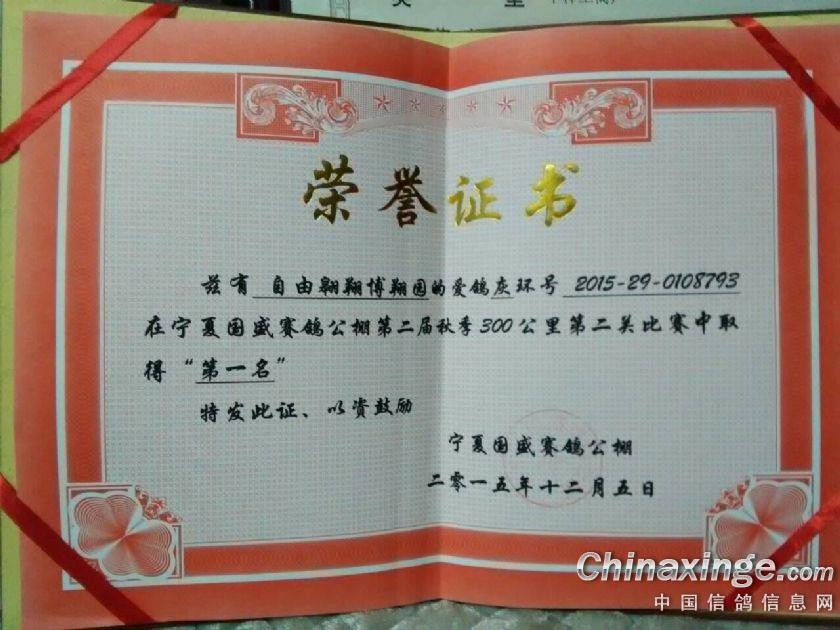 荣誉证书
兹有 自由翱翔博翔园的爱鸽灰环号 2015-29-0108793
在宁夏国盛赛鸽公棚第二届秋季300公里第二关比赛中取
得“第一名”
特发此证、以资鼓励
宁夏国盛赛鸽公棚
二零一五年十二月五日
Chinaxinge.com
中国信鸽信息网